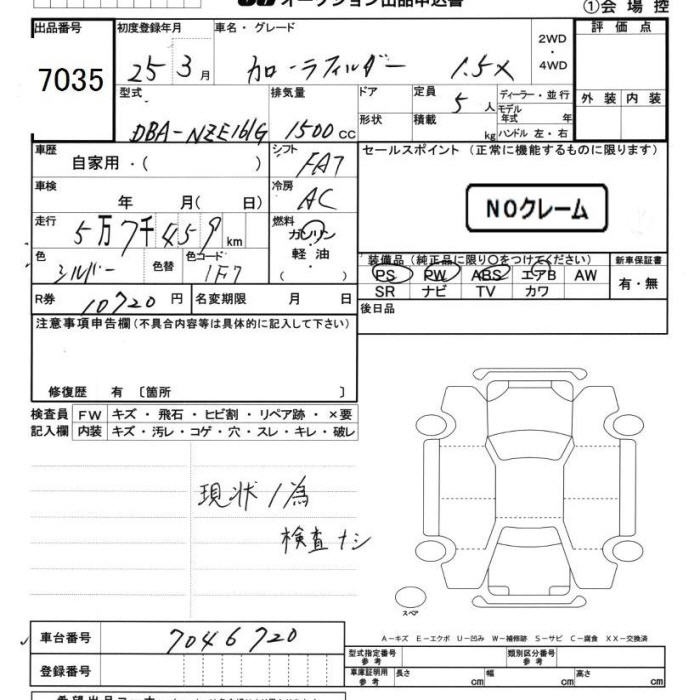 オークション出品申込書 ①会場控
出品番号 初度登録年月 車名・グレード 2WD・4WD 評価点
7035 25年3月 カローラフィルダー 1.5X
型式 排気量 ドア 定員 5人 ディーラー・並行 外装 内装
DBA-NZE161G 1500cc 形状 積載 kg モデル年式 年 ハンドル 左・右
車歴 自家用・( ) シフト FAT セールスポイント (正常に機能するものに限ります)
車検 年 月( 日) 冷房 AC
NOクレーム
走行 5万7千459km 燃料 ガソリン・軽油・( )
色 シルバー 色替 色コード 1F7
装備品(純正品に限り○をつけてください) 新車保証書
PS PW ABS エアB AW 有・無
SR ナビ TV カワ
R券 10720円 名変期限 月 日 後日品
注意事項申告欄(不具合内容等は具体的に記入して下さい)
修復歴 有 〔箇所 〕
検査員 FW キズ・飛石・ヒビ割・リペア跡・×要
記入欄 内装 キズ・汚レ・コゲ・穴・スレ・キレ・破レ
現状ノ為
検査ナシ
スペア
A-キズ E-エクボ U-凹み W-補修跡 S-サビ C-腐食 XX-交換済
車台番号 7046720
型式指定番号 参考 類別区分番号 参考
登録番号 車庫証明用 参考 長さ cm 幅 cm 高さ cm